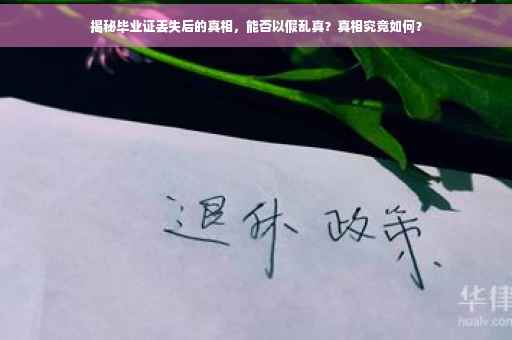 揭秘毕业证丢失后的真相，能否以假乱真？真相究竟如何？
退休 政策
华律
hualv.com